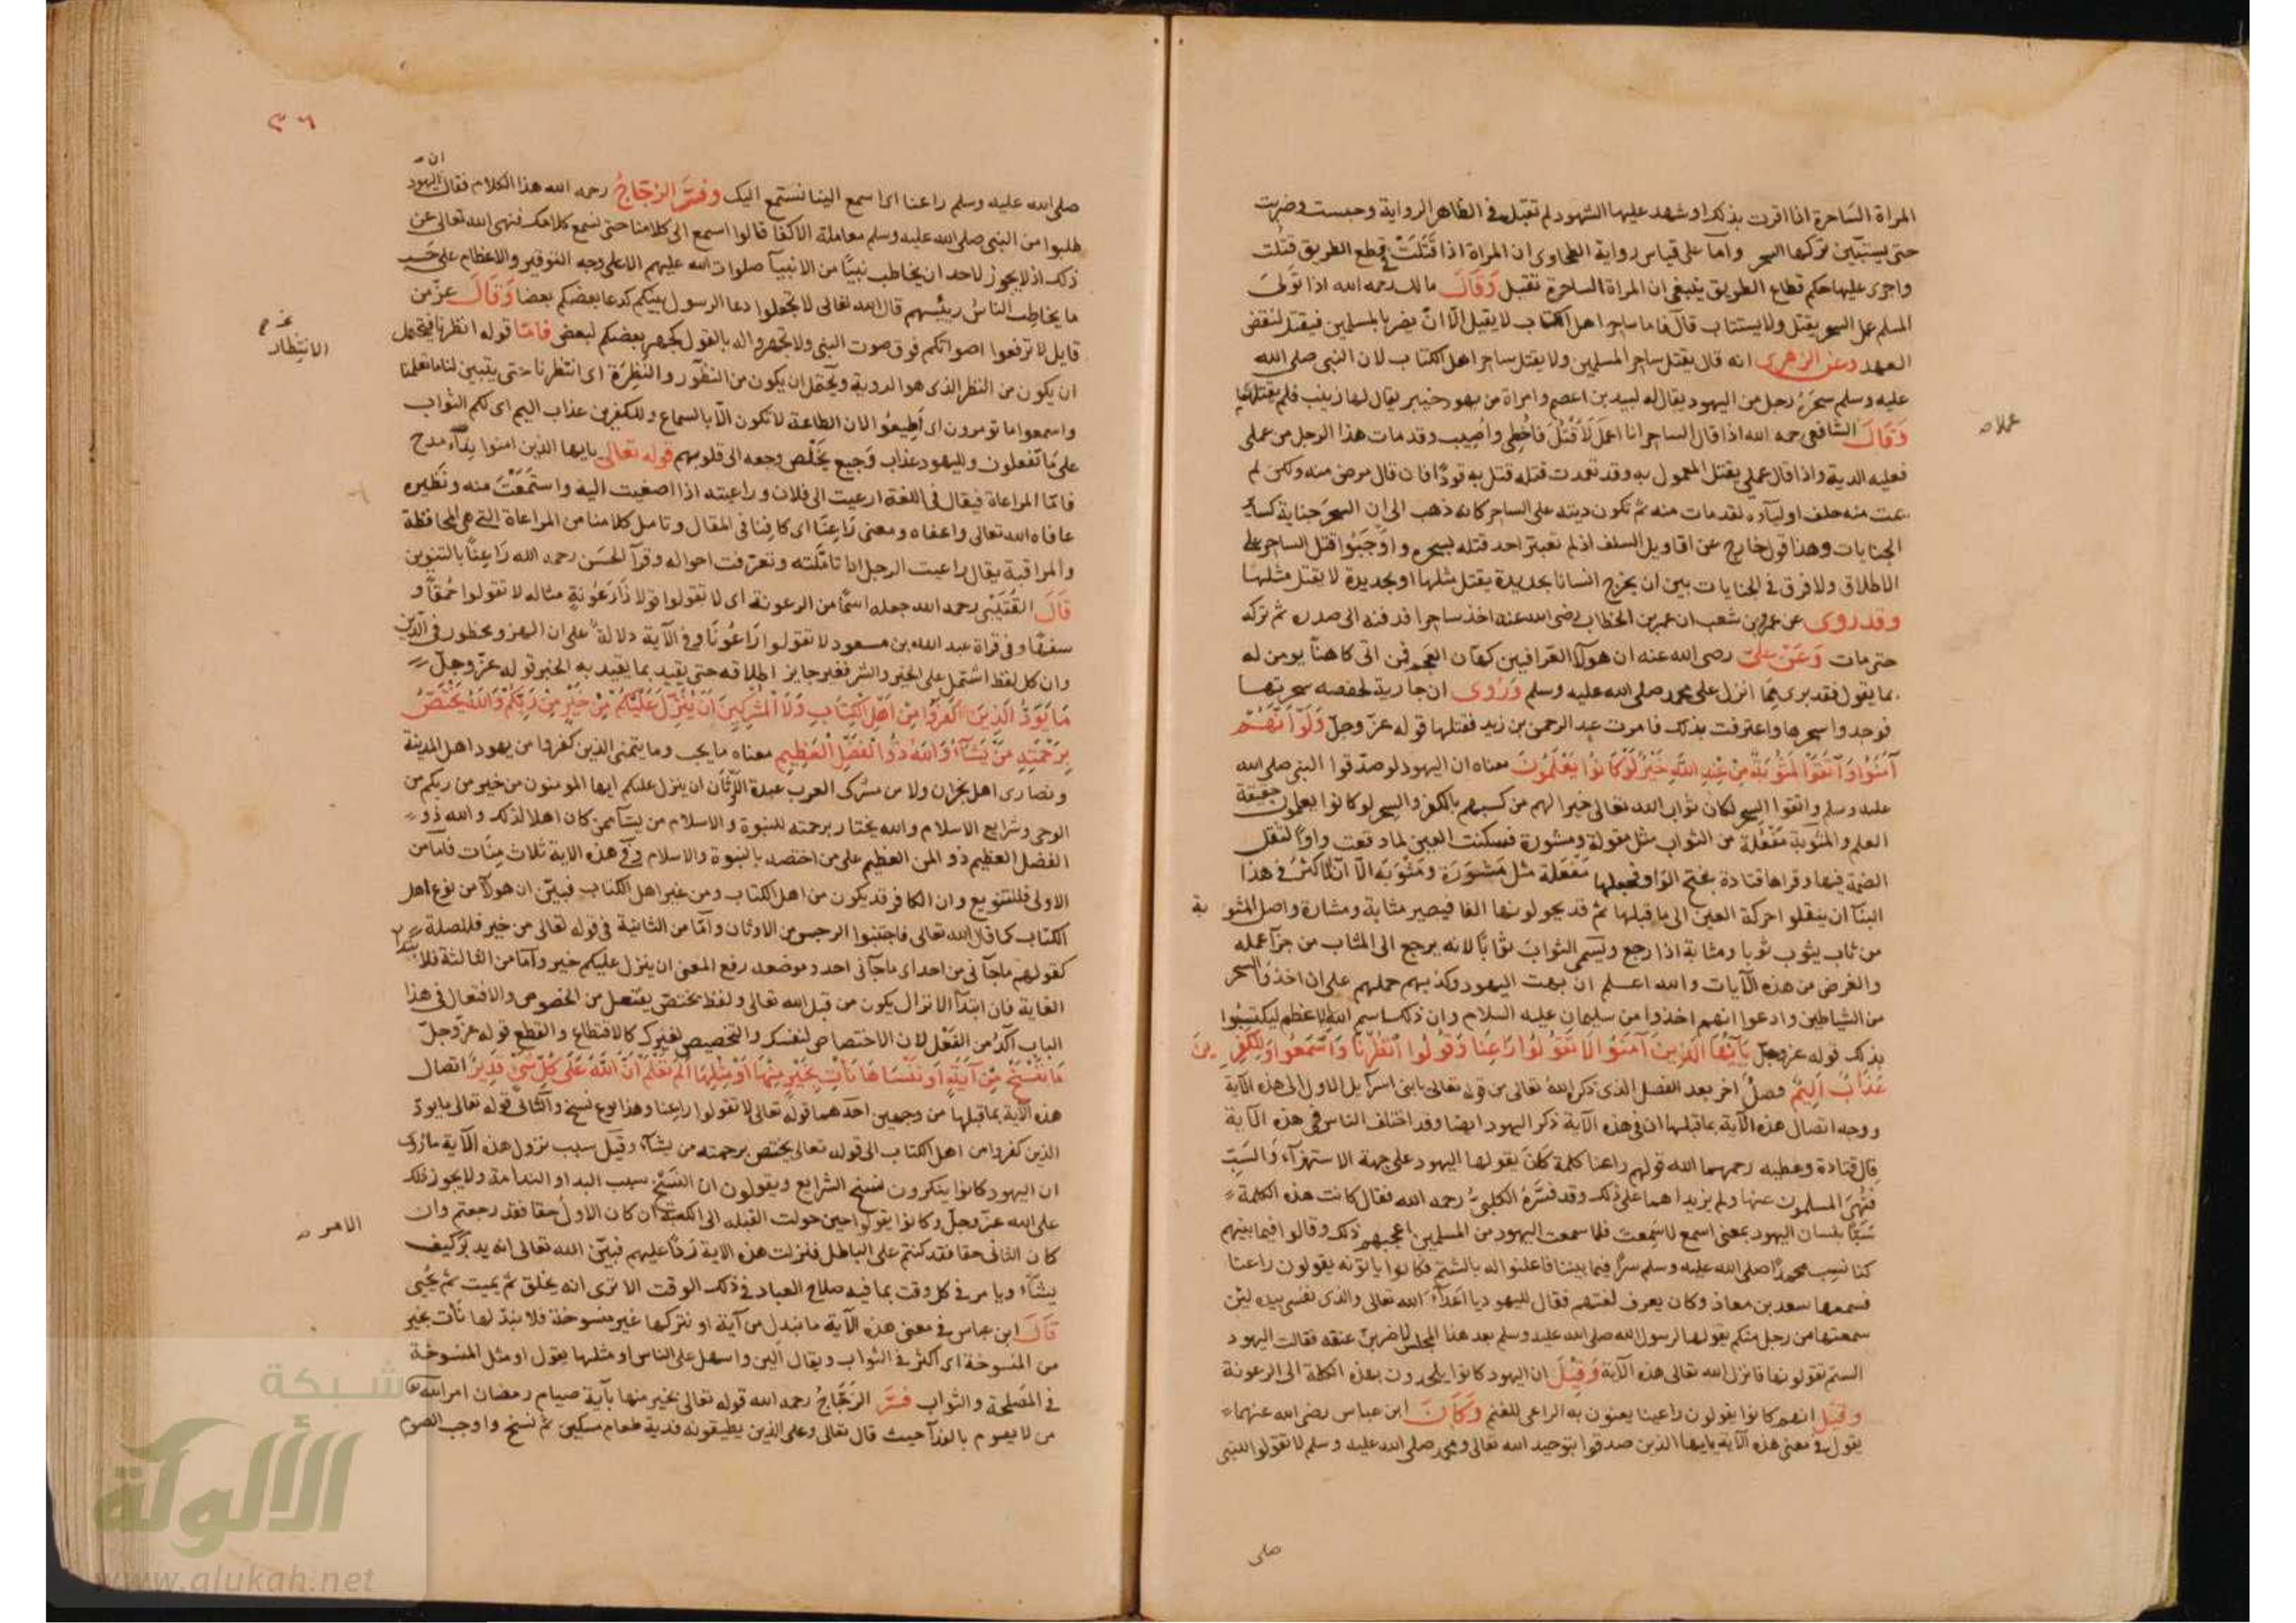 المراة الساحرة اذا اقرت بذلك او شهد عليها الشهود لم تقبل في الظاهر الرواية وحبست وضربت
حتى يستبين تركها السحر واما على قياس رواية الطحاوى ان المراة اذا قَتَلَتْ في قطع الطريق قتلت
واجرى عليها حكم قطاع الطريق ينبغي ان المراة الساحرة تقتل وَقَالَ مالك رحمه الله اذا تولى
المسلم عمل السحر يقتل ولا يستتاب قال فاما ساحر اهل الكتاب لا يقتل الّا انّ يضر بالمسلمين فيقتل لنقض
العهد وعن الزهرى انه قال يقتل ساحر المسلمين ولا يقتل ساحر اهل الكتاب لان النبى صلى الله
عليه وسلم سحَرَهُ رجل من اليهود يقال له لبيد بن اعصم وامراة من يهود خيبر يقال لها زينب فلم يقتلهما
وَقَالَ الشافعى رحمه الله اذا قال الساحر انا اعمل لاَقْتُلَ فاخطى واصيب وقد مات هذا الرجل من عملى
عملا
فعليه الدية واذا قال عملى يقتل المعمول به وقد تعمدت قتله قتل به قودًا فان قال مرض منه ولكن لم
يمت منه حلف اولياؤه لقد مات منه ثم تكون ديته على الساحر كانه ذهب الى ان السحر جناية كسائر
الجنايات وهذا قول خارج عن اقاويل السلف اذ لم تعتبر احد قتله بسحره واوجَبُوا قتل الساحر على
الاطلاق ولا فرق في الجنايات بين ان يجرح انسانا بحديدة يقتل مثلها او بحديدة لا يقتل مثلها
وقد روى عن عمرو بن شعيب ان عمر بن الخطاب رضى الله عنه اخذ ساحرا فدفنه الى صدره ثم تركه
حتى مات وَعَنْ علىّ رضى الله عنه ان هولا العرافين كهّان العَجم فمن اتى كاهناً يومن له
بما يقول فقد برى بما انزل على محمد صلى الله عليه وسلم وَرُوى ان جارية لحفصه سحرتها
فوجدوا سحرها واعترفت بذلك فامرت عبد الرحمن بن زيد فقتلها قوله عزّ وجلّ وَلَوْ اَنَّهُمْ
آمَنُوا وَاتَّقَوْا لَمَثُوبَةٌ مِنْ عِنْدِ اللَّهِ خَيْرٌ لَوْ كَانُوا يَعْلَمُونَ معناه ان اليهود لو صدّقوا النبى صلى الله
عليه وسلم واتقوا السحر لكان ثواب الله تعالى خيرا لهم من كسبهم بالكفر والسحر لو كانوا يعلمون حقيقة
العلم والمَثُوبة مَفْعُلَة من الثواب مثل مقولة ومشورة فسكنت العين لما وقعت واوًا لثقل
الضمة فيها وقراها قتادة بفتح الواو فجعلها مَفْعَلة مثل مَشْوَرَة ومَثْوَبَه الّا انّ الاكثر في هذا
البنآ ان ينقلوا حركة العين الى ما قبلها ثم قد يحولونها الفا فيصير مثابة ومشارة واصل المثوبة
من ثاب يثوب ثوبا ومثابة اذا رجع ويُسمى الثوابُ ثوَابًا لانه يرجع الى المثاب من جزآ عمله
والغرض من هذه الآيات والله اعلم ان بهت اليهود وكذبهم حملهم على ان اخذوا السحر
من الشياطين وادعوا انهم اخذوا من سليمان عليه السلام وان ذلك اسم الله الاعظم ليكتسبُوا
بذلك قوله عزّ وجلّ يَآ اَيُّهَا الَّذِينَ آمَنُوا لَا تَقُولُوا رَاعِنَا وَقُولُوا انْظُرْنَا وَاسْمَعُوا وَلِلْكَافِرِينَ
عَذَابٌ اَلِيمٌ فصلٌ اخر بعد الفصل الذى ذكره اللهُ تعالى من قوله تعالى يا بنى اسرآيل الاول الى هذه الآية
ووجه اتصال هذه الآية بما قبلها ان في هذه الآية ذكر اليهود ايضا وقد اختلف الناس في هذه الآية
قال قتادة وعطيه رحمهما الله قولهم راعنا كلمة كانَ يقولها اليهود على جهة الاستهزآء والسَّبّ
فنُهِىَ المسلمون عنها ولم يزيدا هما على ذلك وقد فسَّرَهُ الكلبىّ رحمه الله فقال كانت هذه الكلمة
سَبًّا بلسان اليهود بمعنى اسمع لا سَمِعتَ فلما سمعت اليهود من المسلمين اعجبهم ذلك وقالوا فيما بينهم
كنا نسب محمدًا صلى الله عليه وسلم سرًّا فيما بيننا فاعلنوا له بالشتم فكانوا ياتونه يقولون راعنا
فسمعها سعد بن معاذ وكان يعرف لغتهم فقال لليهود يا اعدآء الله تعالى والذى نفسى بيده لئن
سمعتها من رجل منكم يقولها لرسول الله صلى الله عليه وسلم بعد هذا المجلس لاضربن عنقه فقالت اليهود
الستم تقولونها فانزل الله تعالى هذه الآية وَقِيْلَ ان اليهود كانوا يلحدون بهذه الكلمة الى الرعونة
وقيل انهم كانوا يقولون راعينا يعنون به الراعى للغنم وَكَانَ ابن عباس رضى الله عنهما
يقول في معنى هذه الآية يايها الذين صدقوا بتوحيد الله تعالى ومحمد صلى الله عليه وسلم لا تقولوا للنبى
صلى
٣٦
صلى الله عليه وسلم راعنا اى اسمع الينا نستمع اليك وفسَّر الزجّاجُ رحمه الله هذا الكلام فقال ان اليهود
طلبوا من النبى صلى الله عليه وسلم معاملة الاكفا قالوا اسمع الى كلامنا حتى نسمع كلامك فنهى الله تعالى عن
ذلك اذ لا يجوز لاحد ان يخاطب نبيًّا من الانبيآ صلوات الله عليهم الا على وجه التوقير والاعظام على حَسب
ما يخاطب الناسُ رئيسهم قال الله تعالى لا تجعلوا دعا الرسول بينكم كدعا بعضكم بعضا وَقَالَ عزّ من
قايل لا ترفعوا اصواتكم فوق صوت النبى ولا تجهروا له بالقول كجهر بعضكم لبعض فامّا قوله انظرنا فيحتمل
ان يكون من النظر الذى هو الروية ويحتمل ان يكون من النظور والنَظِرَة اى انتظرنا حتى يتبين لنا ما تعلمنا
الانتظار
واسمعوا ما تومرون اى اَطِيعُوا لان الطاعة لا تكون الّا بالسماع وللكفرين عذاب اليم اى لكم الثواب
على مَا تفعلون ولليهود عذاب وَجيع يَخْلُص وجعه الى قلوبهم قوله تعالى يايها الذين امنوا ندآء مدح
فامّا المراعاة فيقال في اللغة ارعيت الى فلان وراعيته اذا اصغيت اليه واستَمَعْتَ منه ونَظيره
عافاه الله تعالى واعفاه ومعنى رَاعِنَا اى كافِنا في المقال وتامل كلامنا من المراعاة التي هى المحافظة
والمراقبة يقال راعيت الرجل اذا تامَّلته وتعرّفت احواله وقرآ الحَسَن رحمه الله رَاعِنًا بالتنوين
قَالَ القُتَيْبى رحمه الله جعله اسمًا من الرعونة اى لا تقولوا قولا ذَا رَعُونَةٍ مثاله لا تقولوا حُمقًا و
سفهًا وفى قراة عبد الله بن مسعود لا تقولوا رَاعُونَا وفى الآية دلالةٌ على ان الهزو محظور في الدين
وان كل لفظ اشتمل على الخير والشر فغير جايز اطلاقه حتى يقيد بما يفيد به الخير قوله عزّ وجلّ
مَا يَوَدُّ الَّذِينَ كَفَرُوا مِنْ اَهْلِ الْكِتَابِ وَلَا الْمُشْرِكِينَ اَنْ يُنَزَّلَ عَلَيْكُمْ مِنْ خَيْرٍ مِنْ رَبِّكُمْ وَاللَّهُ يَخْتَصُّ
بِرَحْمَتِهِ مَنْ يَشَآءُ وَاللَّهُ ذُو الْفَضْلِ الْعَظِيمِ معناه ما يحب وما يتمنى الذين كفروا من يهود اهل المدينة
ونصارى اهل نجران ولا من مشركى العرب عبدة الاَوْثَان ان ينزل عليكم ايها المومنون من خير من ربكم من
الوحى وشرايع الاسلام والله يختار برحمته للنبوة والاسلام من يشآ ممن كان اهلا لذلك والله ذو
الفضل العظيم ذو المن العظيم على من اختصه بالنبوة والاسلام وفى هذه الاية ثلاث مِنَات فامّا من
الاولى فللتنويع وان الكافر قد يكون من اهل الكتاب ومن غير اهل الكتاب فبيّن ان هولآ من نوع اهل
الكتاب كما قال الله تعالى فاجتنبوا الرجس من الاوثان وامّا من الثانية في قوله تعالى من خير فللصلة
كقولهم ما جآنى من احد اى ما جآنى احد وموضعه رفع المعنى ان ينزل عليكم خير وامّا من الثالثة فلابتدا
الغاية فان ابتدآ الانزال يكون من قبل الله تعالى ولفظ يختصّ يفتعل من الخصوص والافتعال في هذا
الباب آكدُ من الفَعْل لان الاختصاص لنفسك والتخصيص لغيرك كالاقتطاع والقطع قوله عزّ وجلّ
مَا نَنْسَخْ مِنْ آيَةٍ اَوْ نَنْسَاهَا نَأْتِ بِخَيْرٍ مِنْهَا اَوْ مِثْلِهَا اَلَمْ تَعْلَمْ اَنَّ اللَّهَ عَلَى كُلِّ شَىْءٍ قَدِيرٌ اتصال
هذه الآية بما قبلها من وجهين احدهما قوله تعالى لا تقولوا راعنا وهذا نوع نسخ والثانى قوله تعالى ما يودّ
الذين كفروا من اهل الكتاب الى قوله تعالى يختص برحمته من يشآء وقيل سبب نزول هذه الآية ما روى
ان اليهود كانوا ينكرون نسخ الشرايع ويقولون ان النَّسْخ سبب البدا والندامة ولا يجوز ذلك
على الله عزّ وجلّ وكانوا يقولوا حين حولت القبله الى الكعبة ان كان الاول حقا فقد رجعتم وان
الامر
كان الثانى حقا فقد كنتم على الباطل فنزلت هذه الاية رَدًّا عليهم فبيّن الله تعالى انه يدبّر كيف
يشآء ويامر في كل وقت بما فيه صلاح العباد في ذلك الوقت الا ترى انه يخلق ثم يميت ثم يُحيى
قَالَ ابن عباس في معنى هذه الآية ما نبدل من آية او نتركها غير منسوخة فلا نبدّلها نأت بخير
من المنسوخة اى اكثر في الثواب ويقال اَلين واسهل على الناس او مثلها يقول او مثل المنسوخة
في المَصلحة والثواب فسَّرَ الزَجَّاجُ رحمه الله قوله تعالى بخير منها بآية صيام رمضان امر الله
من لا يصوم بالفدآ حيث قال تعالى وعلى الذين يطيقونه فدية طعام مسكين ثم نسخ واوجب الصوم
شبكة
الألوكة
www.alukah.net